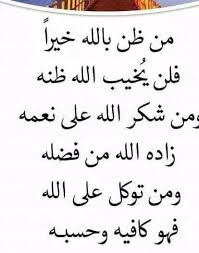 من ظن بالله خيراً
فلن يُخيب الله ظنه
ومن شكر الله على نعمه
زاده الله من فضله
ومن توكل على الله
فهو كافيه وحسبه